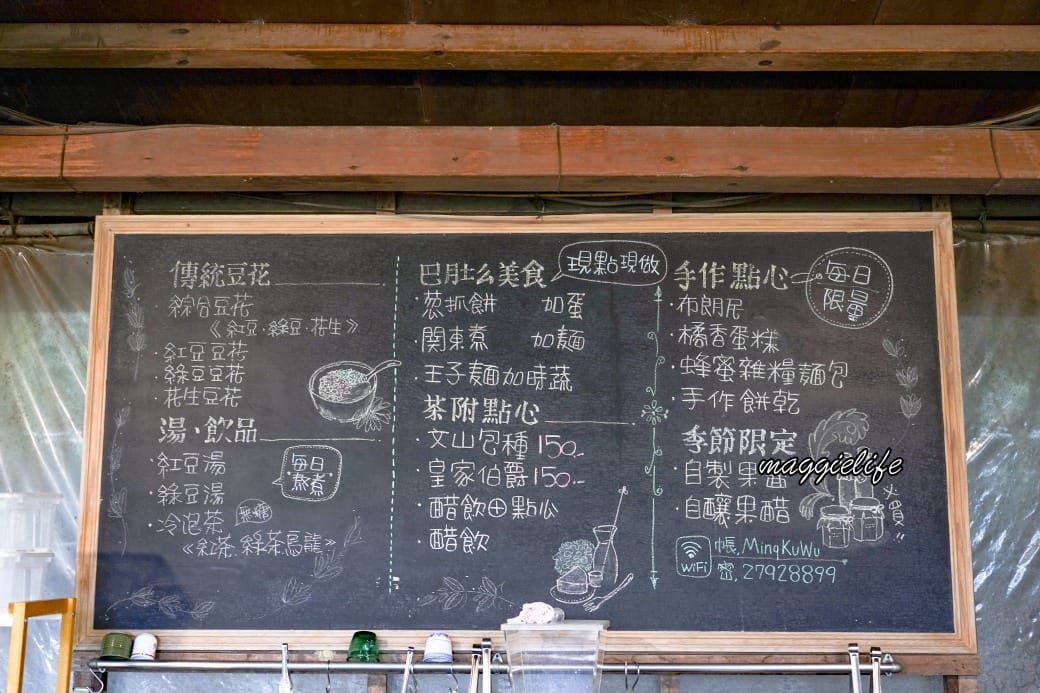 傳統豆花
·綜合豆花
《紅豆·綠豆·花生》
·紅豆豆花
·綠豆豆花
·花生豆花
湯·飲品
·紅豆湯
·綠豆湯
每日
熬煮
·冷泡茶
無糖
《紅茶.綠茶.烏龍》
巴肚么美食
現點現做
·蔥抓餅 加蛋
·関東煮 加麵
·王子麵加時蔬
茶附點心
·文山包種150.-
·皇家伯爵150.-
·醋飲⊕點心
·醋飲
手作點心
每日
限量
·布朗尼
·橘香蛋糕
·蜂蜜雜糧麵包
·手作餅乾
季節限定
·自製果醬
·自釀果醋
必買
WiFi
帳.MingKuWu
密.27928899
maggielife